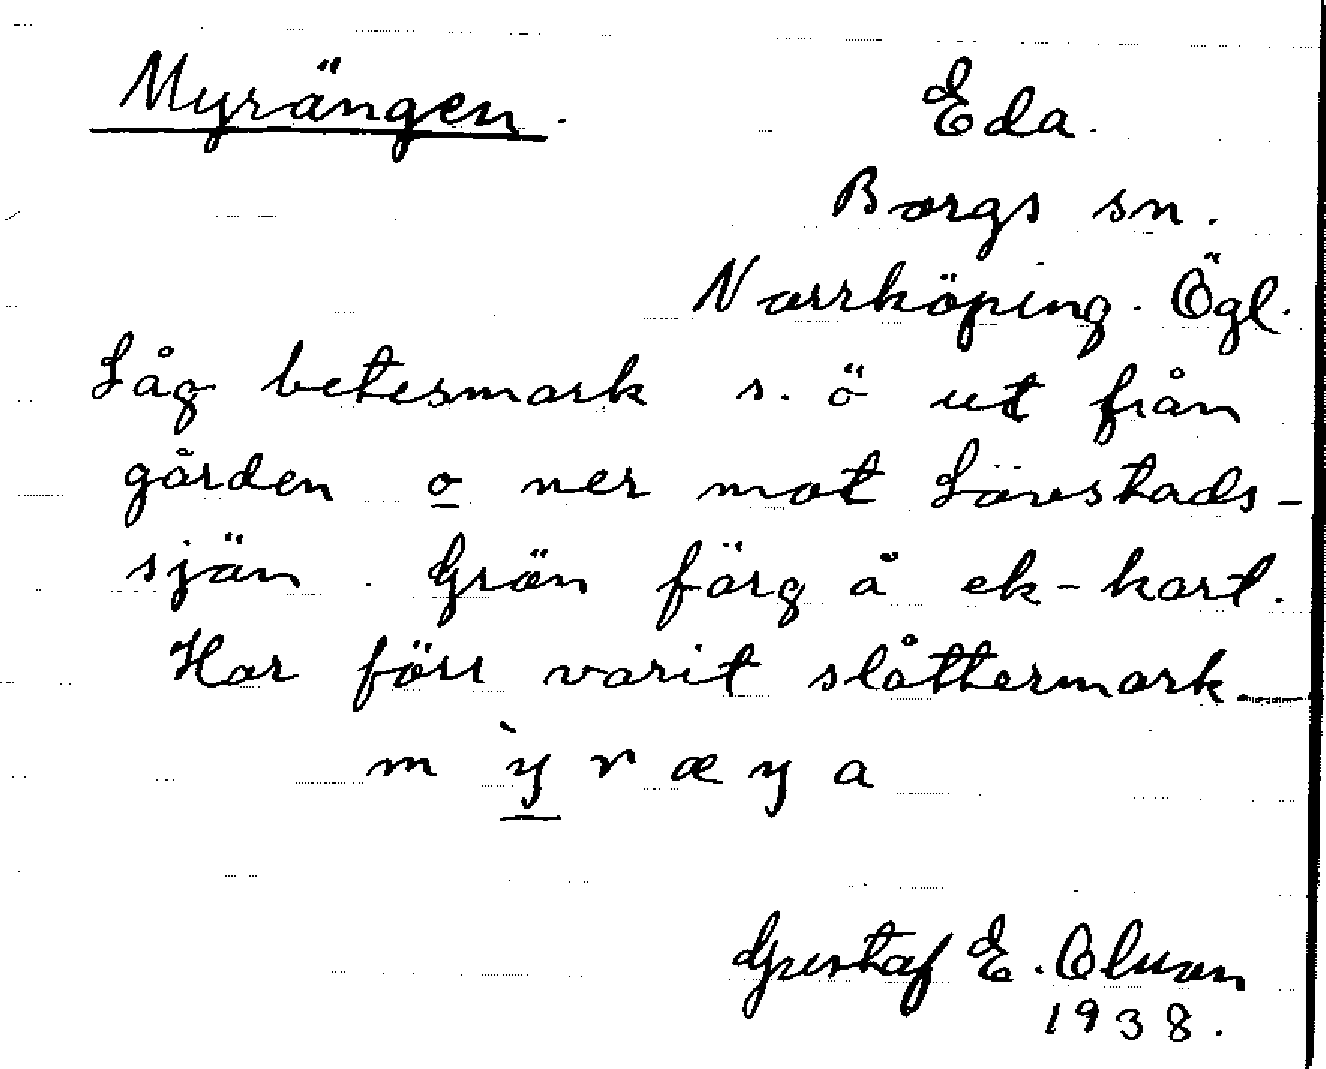 Myrängen. Eda.
Borgs sn.
Norrköping. Ögl.
Låg betesmark s. ö ut från
gården o ner mot Lövstads-
sjön. Grön färg å ek-kart.
Har förr varit slåttermark
m ỳ r æ ŋ a
Gustaf E. Olson
1938.